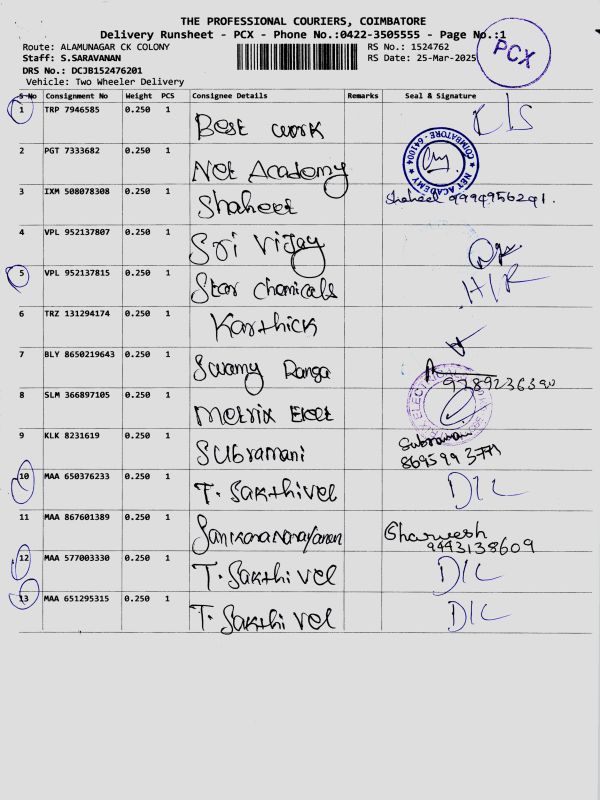 THE PROFESSIONAL COURIERS, COIMBATORE
Delivery Runsheet - PCX - Phone No.:0422-3505555 - Page No.:1
Route: ALAMUNAGAR CK COLONY
RS No.: 1524762
Staff: S.SARAVANAN
RS Date: 25-Mar-2025
PCX
DRS No.: DCJB152476201
Vehicle: Two Wheeler Delivery
S No Consignment No Weight PCS Consignee Details Remarks Seal & Signature
1 TRP 7946585 0.250 1 Best work
2 PGT 7333682 0.250 1 Net Academy NET ACADEMY COIMBATORE - 641004
3 IXM 508078308 0.250 1 Shaheet Shaheel 9994956291.
4 VPL 952137807 0.250 1 Sri Vijay
5 VPL 952137815 0.250 1 Star Chemicals H/R
6 TRZ 131294174 0.250 1 Karthick
7 BLY 8650219643 0.250 1 Swamy Ranga
8 SLM 366897105 0.250 1 Metrix Elect
9 KLK 8231619 0.250 1 Subramani Subramani
10 MAA 650376233 0.250 1 T. Sakthivel D/C
11 MAA 867601389 0.250 1 Sankaranarayanan Gharvesh 9443138609
12 MAA 577003330 0.250 1 T. Sakthi vel D/C
13 MAA 651295315 0.250 1 T. Sakthi vel D/C